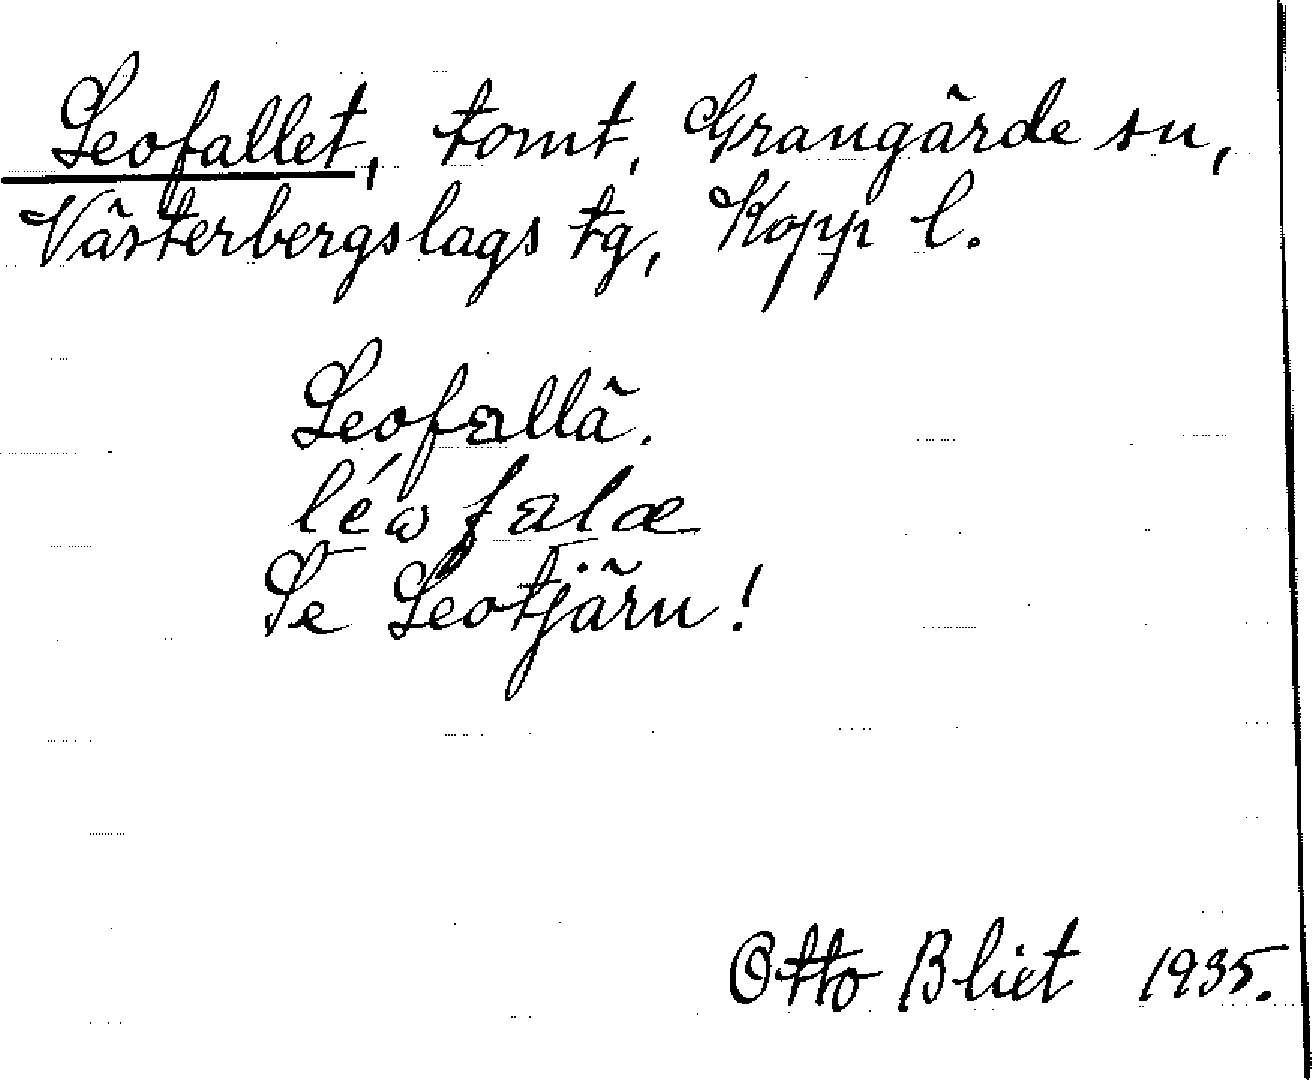 Leofallet, tomt, Grangärde sn,
Västerbergslags tg, Kopp l.
Leofallä.
léωfalæ
Se Leotjärn!
Otto Blixt 1935.